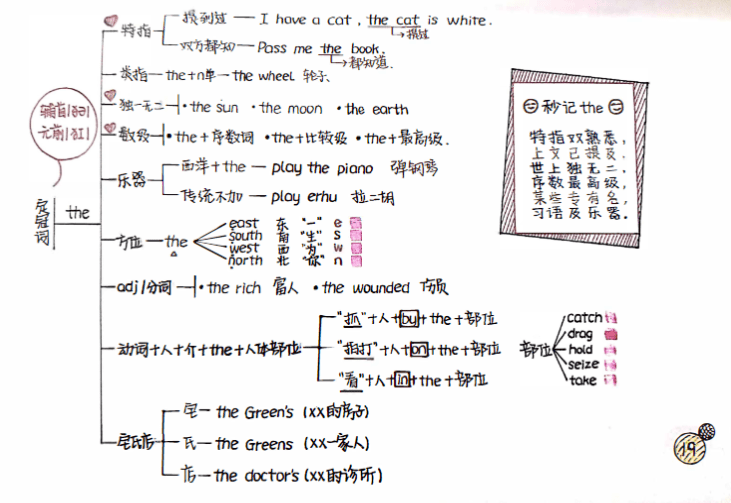 特指
提到过 — I have a cat, the cat is white.
提过
双方都知 — Pass me the book.
都知道.
类指 — the+n单 — the wheel 轮子.
独一无二 • the sun • the moon • the earth
数级 • the+序数词 • the+比较级 • the+最高级.
辅前/ðə/
元前/ðɪ/
乐器
西洋+the — play the piano 弹钢琴
传统不加 — play erhu 拉二胡
定冠词 the
方位 — the
east 东 "一" e
south 南 "生" s
west 西 "为" w
north 北 "你" n
adj/分词 • the rich 富人 • the wounded 伤员
动词+人+介+the+人体部位
"抓"+人+by+the+部位
"拍打"+人+on+the+部位
"看"+人+in+the+部位
部位
catch
drag
hold
seize
take
宅氏店
宅 — the Green's (XX的房子)
氏 — the Greens (XX一家人)
店 — the doctor's (XX的诊所)
秒记 the
特指双熟悉,
上文已提及.
世上独无二,
序数最高级,
某些专有名,
习语及乐器.
19